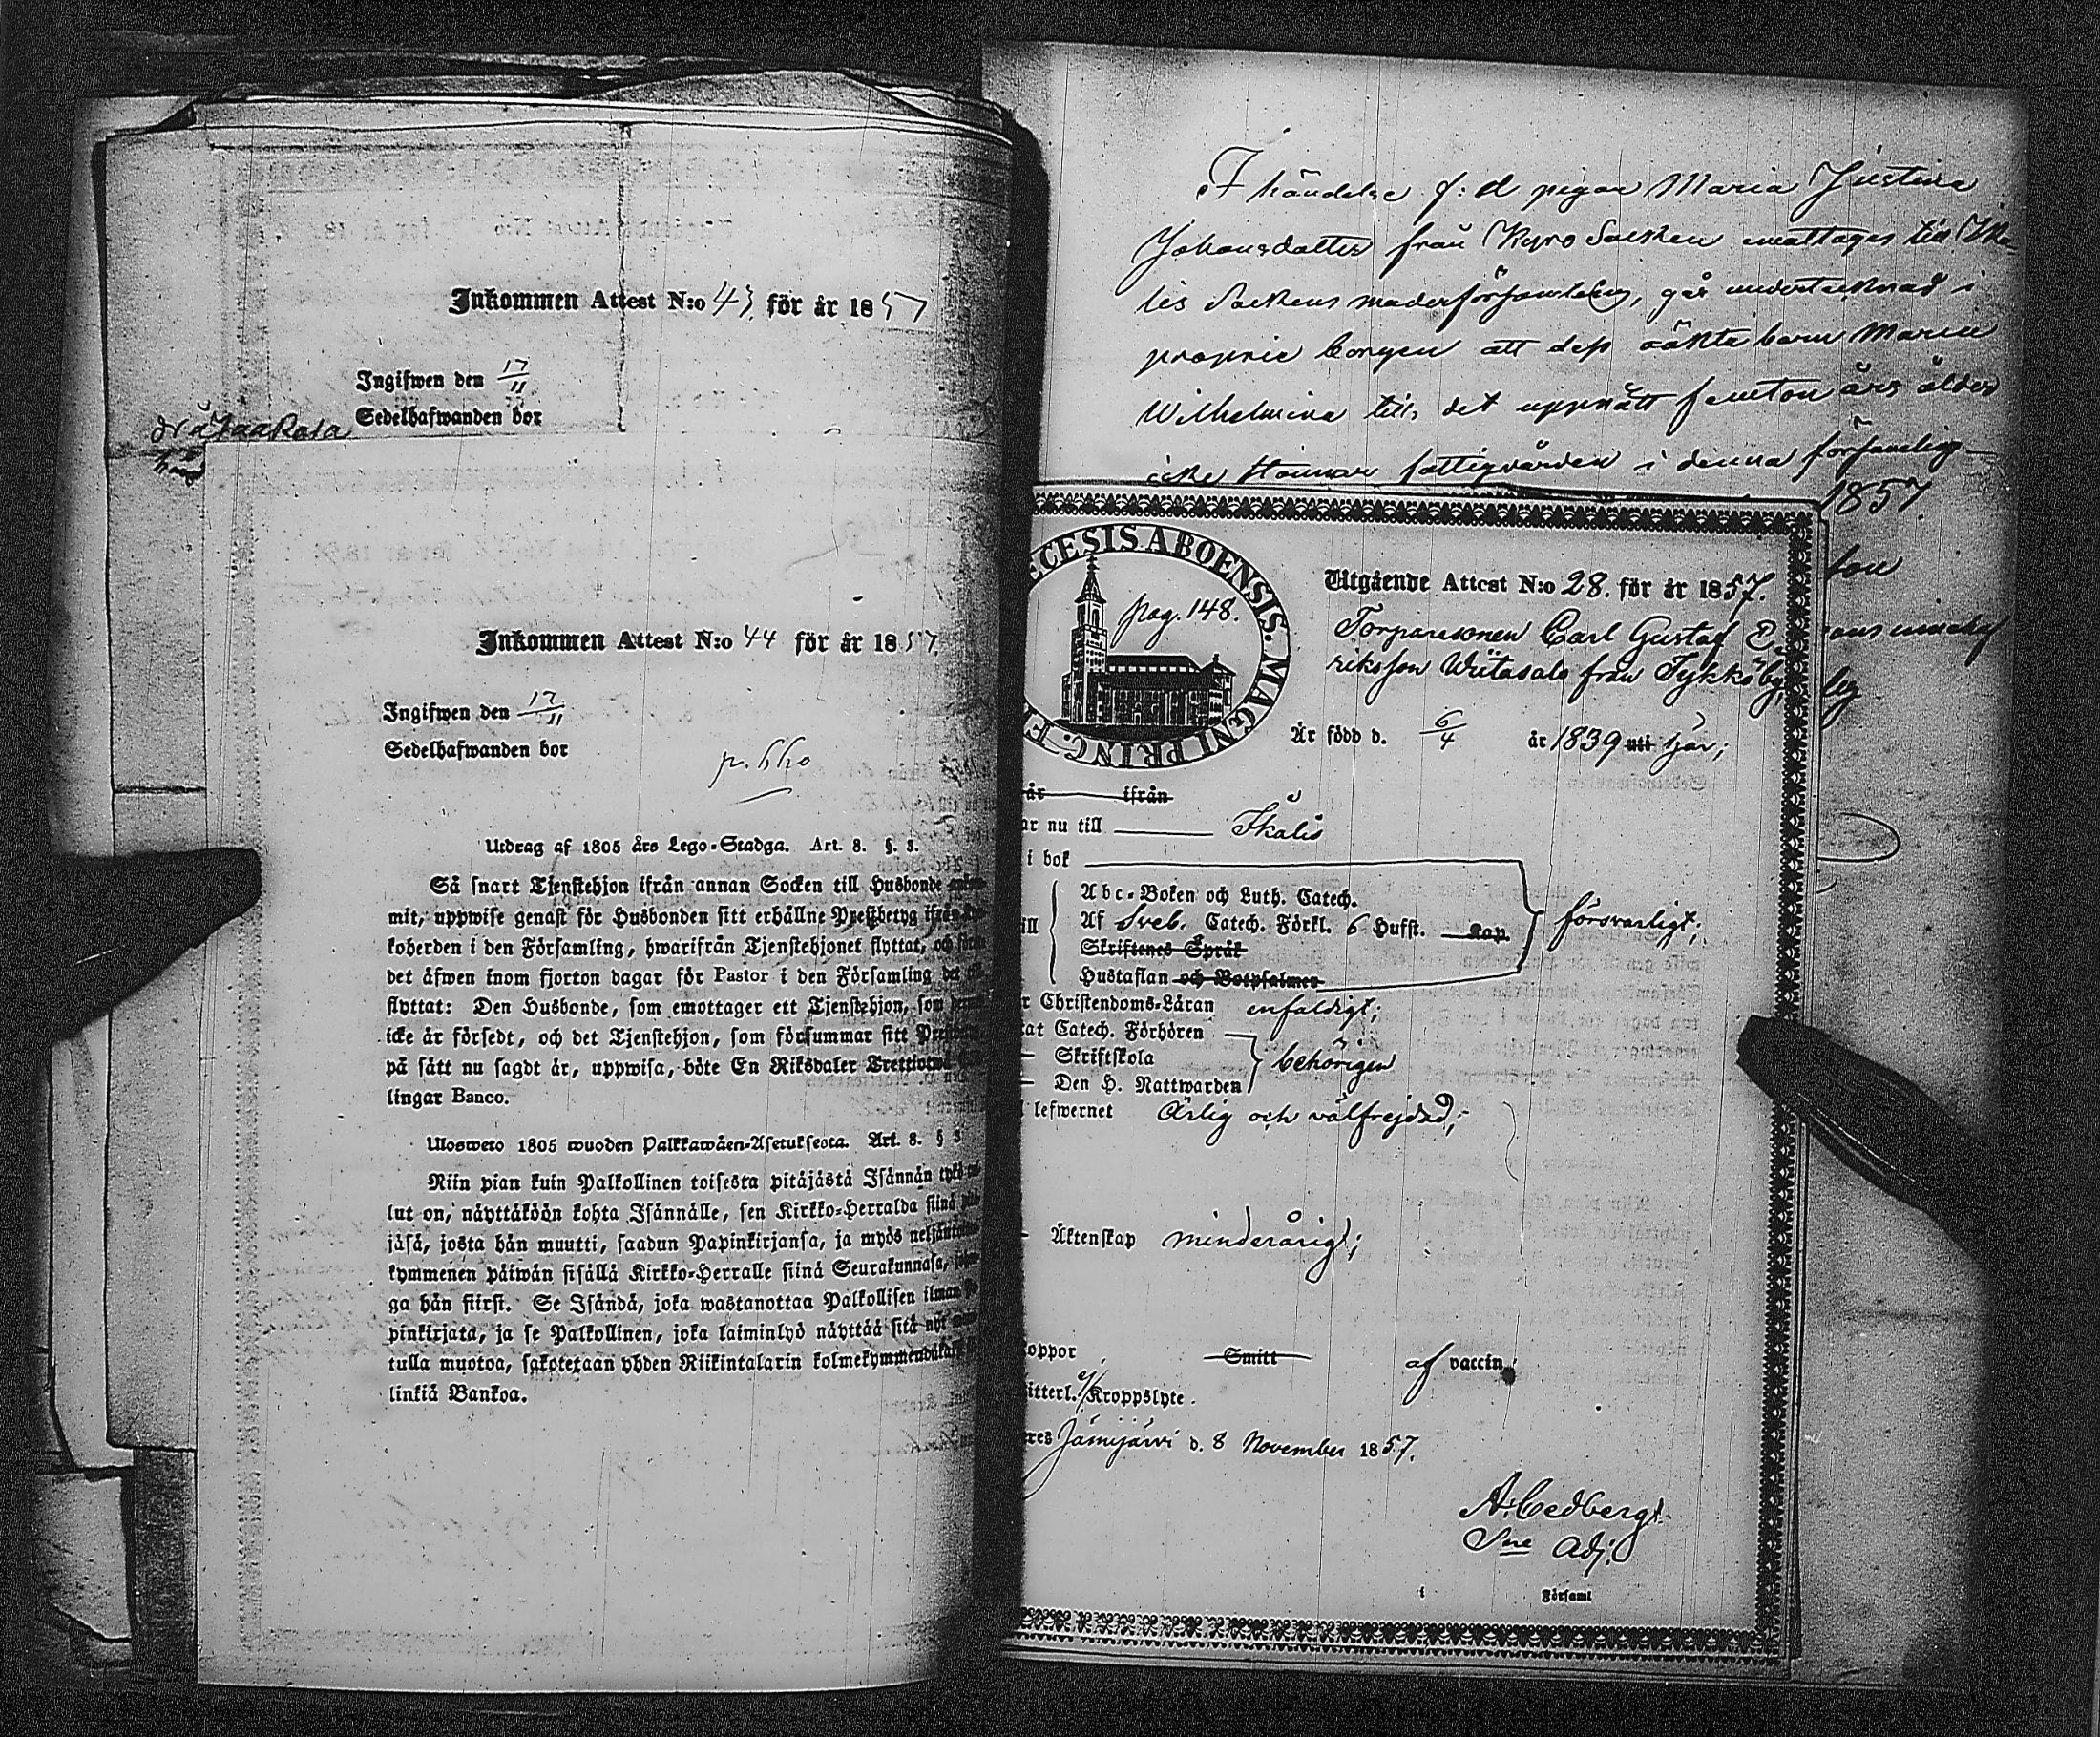 Inkommen Attest N:o 43 för år 1857
Ingifwen den 17/11
Sedelhafwanden bor
Inkommen Attest N:o 44 för år 1857.
Ingifwen den 17/11
Sedelhafwanden bor
Utdrag af 1805 års Lego-Stadga. Art. 8. §. 3.
Så snart Tjenstehjon ifrån annan Socken till Husbonde
mit, uppwise genast för Husbonden sitt erhållne Prestbetyg ifrån
koherden i den Församling, hwarifrån Tjenstehjonet flyttat, och
det äfwen inom fjorton dagar för Pastor i den Församling det
flyttat: Den Husbonde, som emottager ett Tjenstehjon, som
icke är försedt, och det Tjenstehjon, som försummar sitt
på sätt nu sagdt är, uppwisa, böte En Riksdaler Trettiotwå
lingar Banco.
Ulosweto 1805 wuoden Palkkawäen-Asetuksesta. Art. 8. § 3
Niin pian kuin Palkollinen toisesta pitäjästä Isännän tykö
lut on, näyttäköön kohta Isännälle, sen Kirkko-Herralda siinä
jäsä, josta hän muutti, saadun Papinkirjansa, ja myös neljäntoista
kymmenen päiwän sisällä Kirkko-Herralle siinä Seurakunnasa,
ga hän siirsi. Se Isändä, joka wastanottaa Palkollisen ilman
pinkirjata, ja se Palkollinen, joka laiminlyö näyttää sitä nyt
tulla muotoa, sakotetaan yhden Riikintalarin kolmekymmendäkaksi
linkiä Bankoa.
I händelse f: d pigan Maria Justina
Johansdotter från Kyro Socken emottages till Ika-
lis Sockens moderförsamling, går undertecknad i
proprie borgen att dess oäkta barn Maria
Wilhelmina till, det uppnått femton års ålder
icke kommer fattigvården i denna församling
1857.
ECESIS ABOENSIS. MAGNI PRINC. F
pag. 148.
Utgående Attest N:o 28. för år 1857.
Torparesonen Carl Gustaf E-
riksson Wiitasalo från Tykköby,
Är född d. 6/4 år 1839 uti
år ifrån
ar nu till Ikalis
i bok
Abc-Boken och Luth. Catech.
Af Sveb. Catech. Förkl. 6 Hufst. Kap.
Skriftenes Språk
Hustaflan och Botpsalmer
försvarligt;
r Christendoms-Läran enfaldigt;
at Catech. Förhören
Skriftskola
Den H. Nattwarden
behörigen
lefwernet Ärlig och välfrejdad;
Äktenskap minderårig;
oppor Smitt af vaccin
itterl. Kroppslyte.
res Jämijärvi d. 8 November 1857.
A. Cedberg
Sne Adj.
Församl